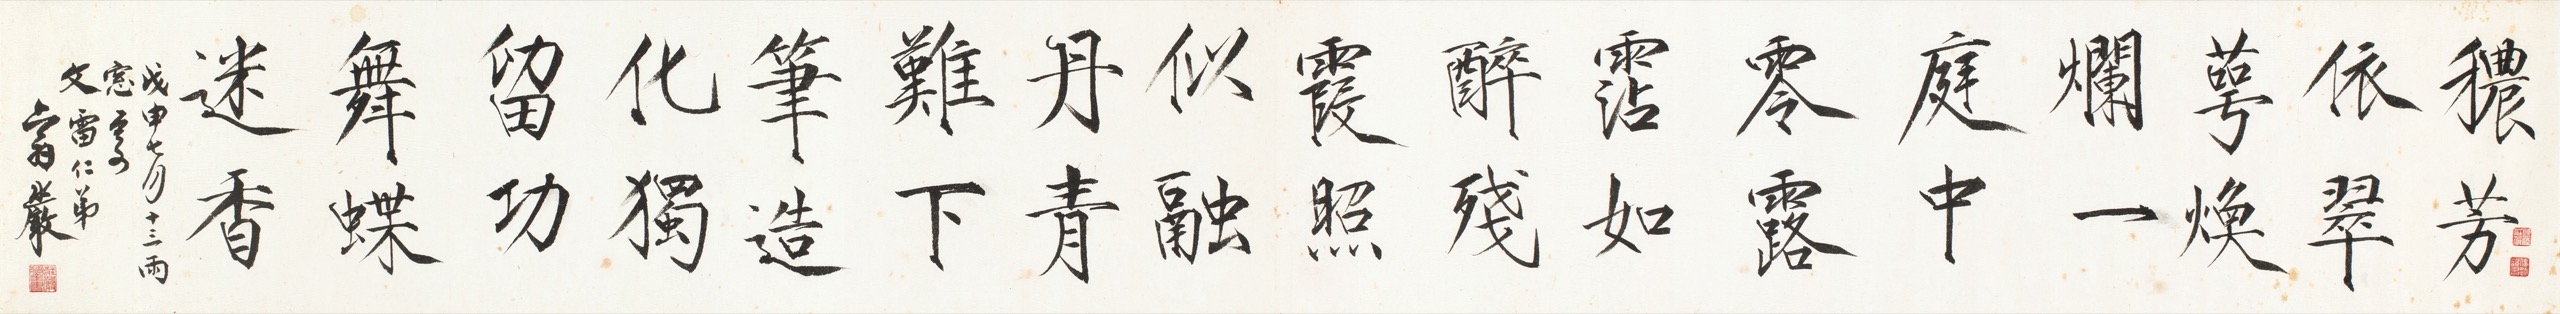 穠芳
依翠
萼煥
爛一
庭中
零露
霑如
醉殘
霞照
似融
丹青
難下
筆造
化獨
留功
舞蝶
迷香
戊申七月十三雨
窓
文雷仁弟
嚴